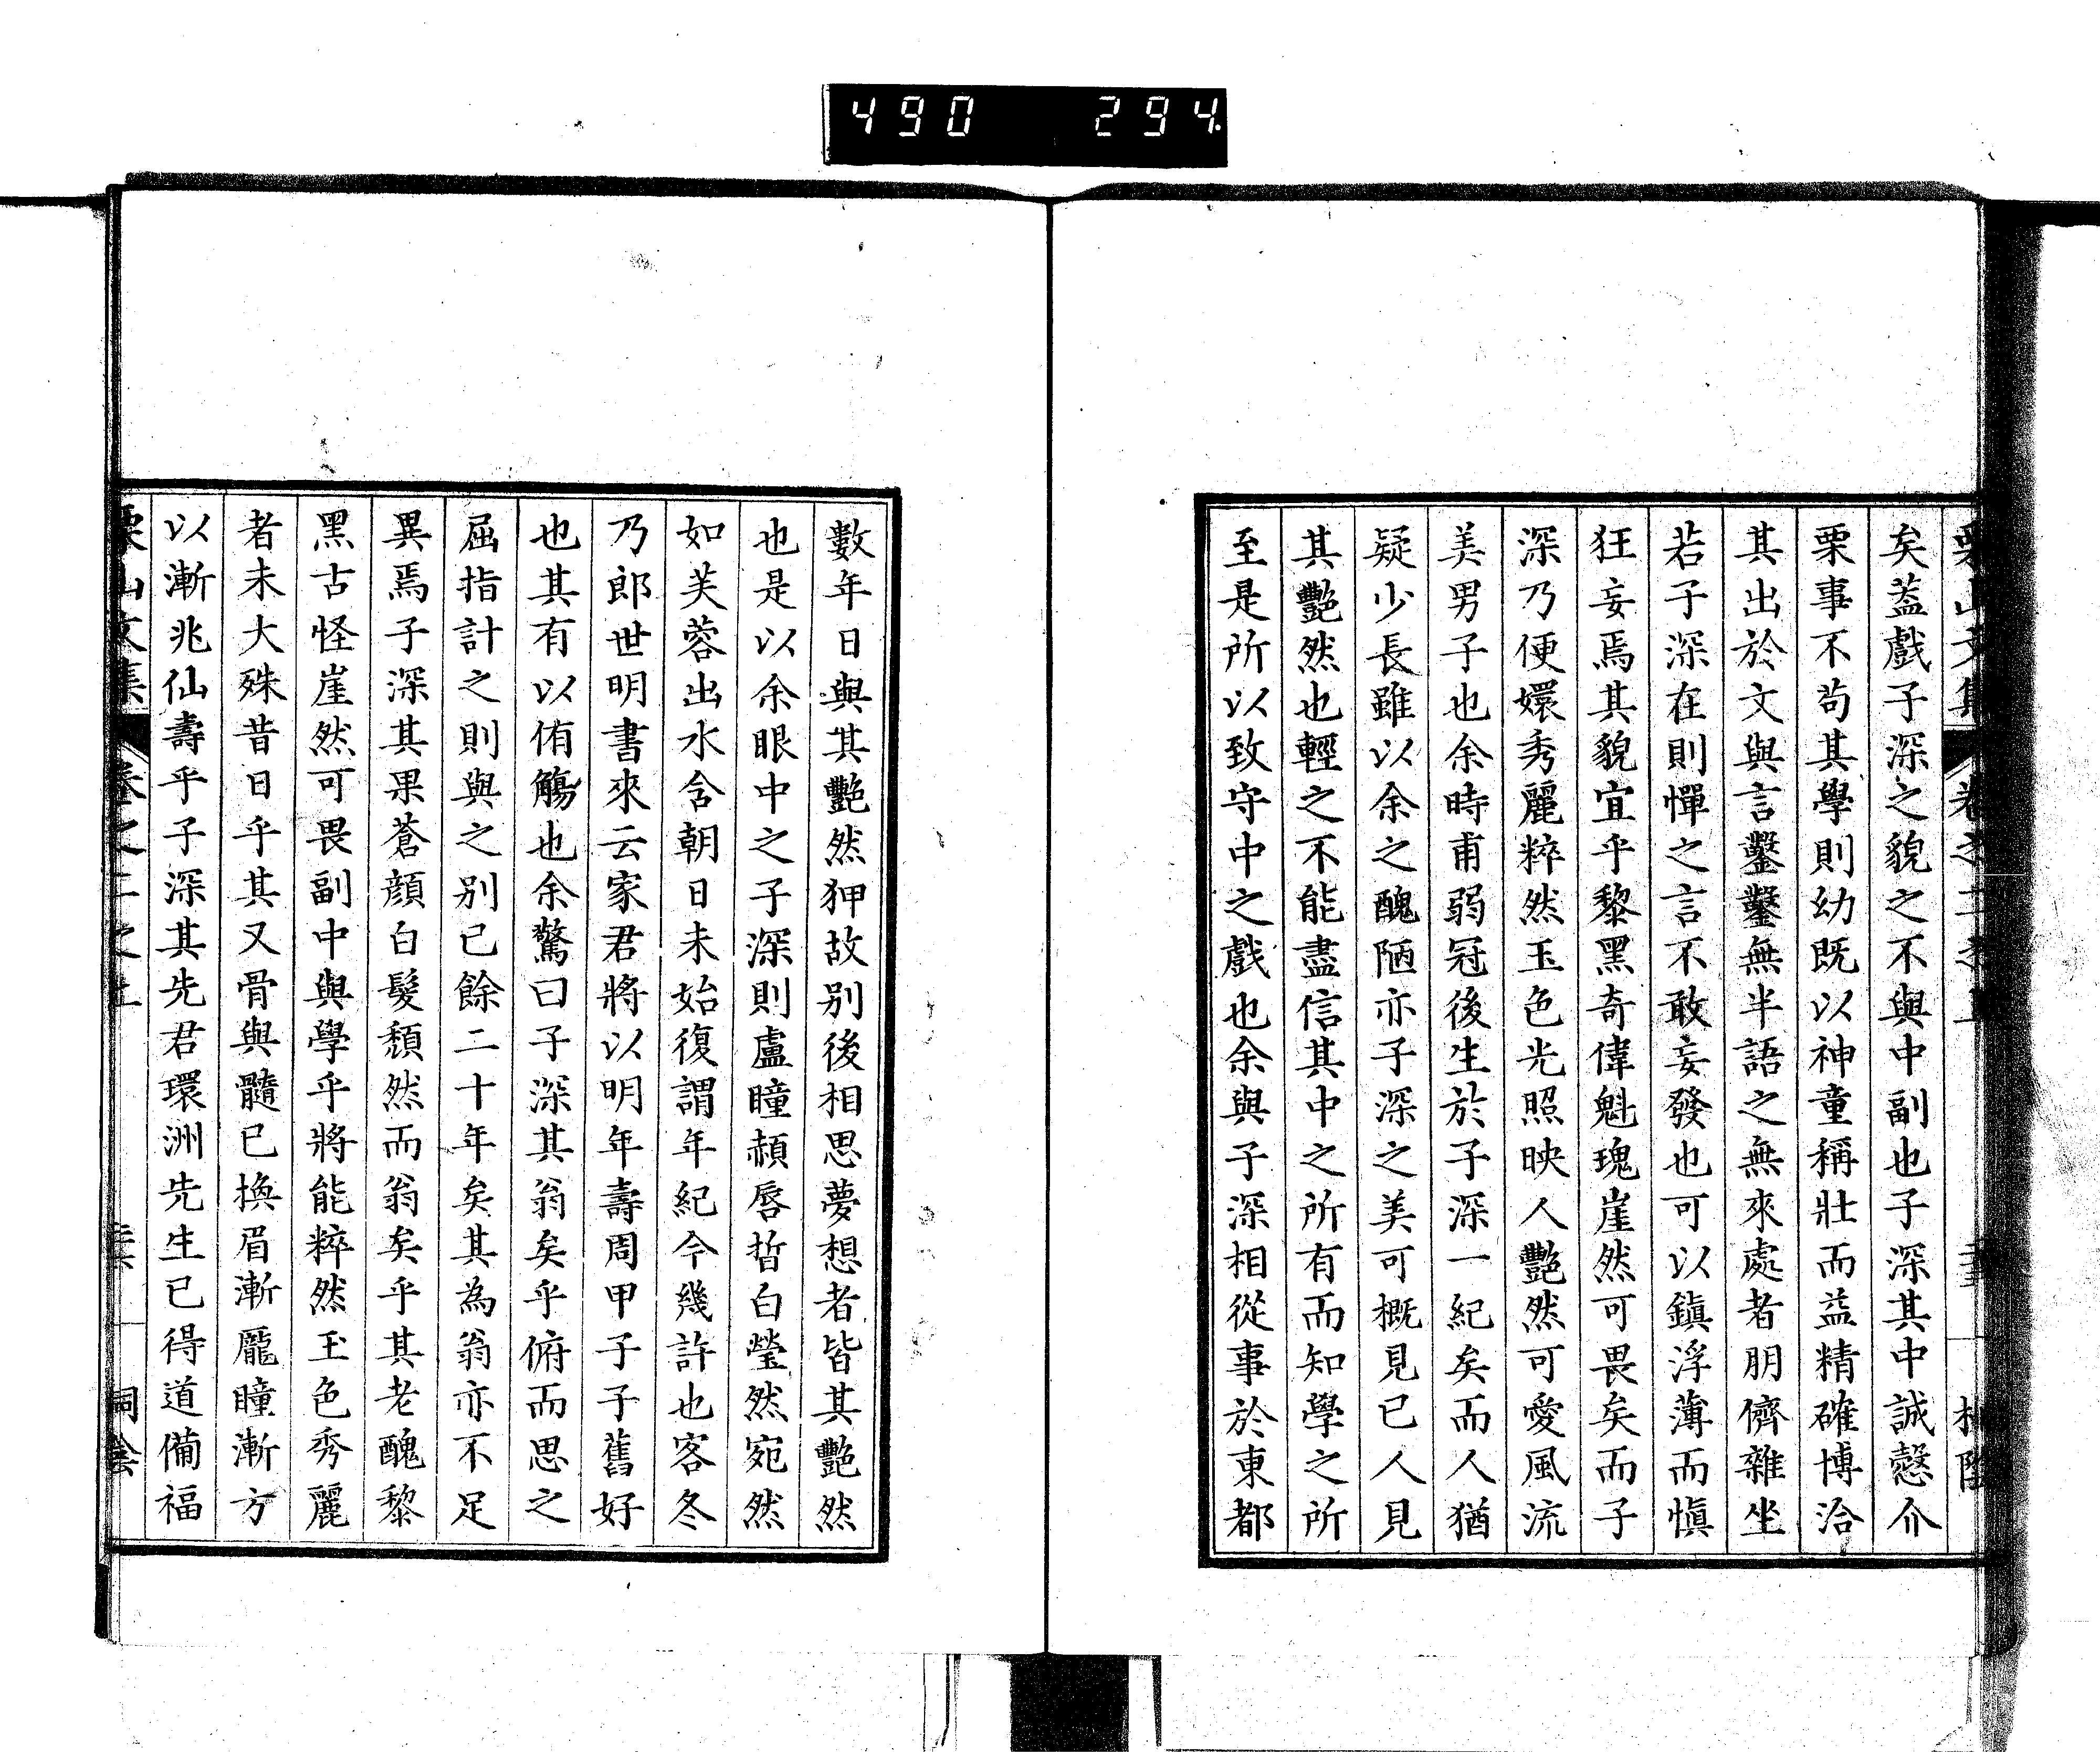 490 294
栗山文集 卷之二之上
矣葢戲子深之貌之不與中副也子深其中誠愨介
栗事不茍其學則幼既以神童稱壯而益精確博洽
其出於文與言鑿鑿無半語之無來處者朋儕雜坐
若子深在則憚之言不敢妄發也可以鎮浮薄而愼
狂妄焉其貌宜乎黎黑奇偉魁瑰崖然可畏矣而子
深乃便嬛秀麗粹然玉色光照映人艷然可愛風流
美男子也余時甫弱冠後生於子深一紀矣而人猶
疑少長雖以余之醜陋亦子深之美可概見已人見
其艷然也輕之不能盡信其中之所有而知學之所
至是所以致守中之戲也余與子深相從事於東都
數年日與其艷然狎故别後相思夢想者皆其艷然
也是以余眼中之子深則盧瞳頳唇晳白瑩然宛然
如芙蓉出水含朝日未始復謂年紀今幾許也客冬
乃郎世明書來云家君將以明年壽周甲子子舊好
也其有以侑觴也余驚曰子深其翁矣乎俯而思之
屈指計之則與之别已餘二十年矣其為翁亦不足
異焉子深其果蒼顔白髮頽然而翁矣乎其老醜黎
黑古怪崖然可畏副中與學乎將能粹然玉色秀麗
者未大殊昔日乎其又骨與髓已換眉漸龐瞳漸方
以漸兆仙壽乎子深其先君環洲先生已得道備福
栗山文集 卷之二之上